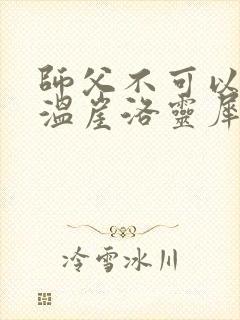 師父不可以
溫崖洛靈犀
冷雪冰川